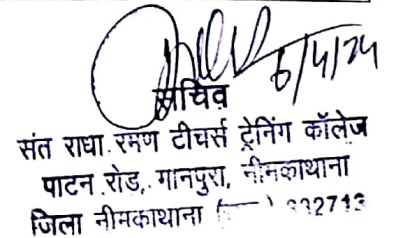 6/4/24
सचिव
संत राधा रमण टीचर्स ट्रेनिंग कॉलेज
पाटन रोड, गानपुरा, नीमकाथाना
जिला नीमकाथाना 332713